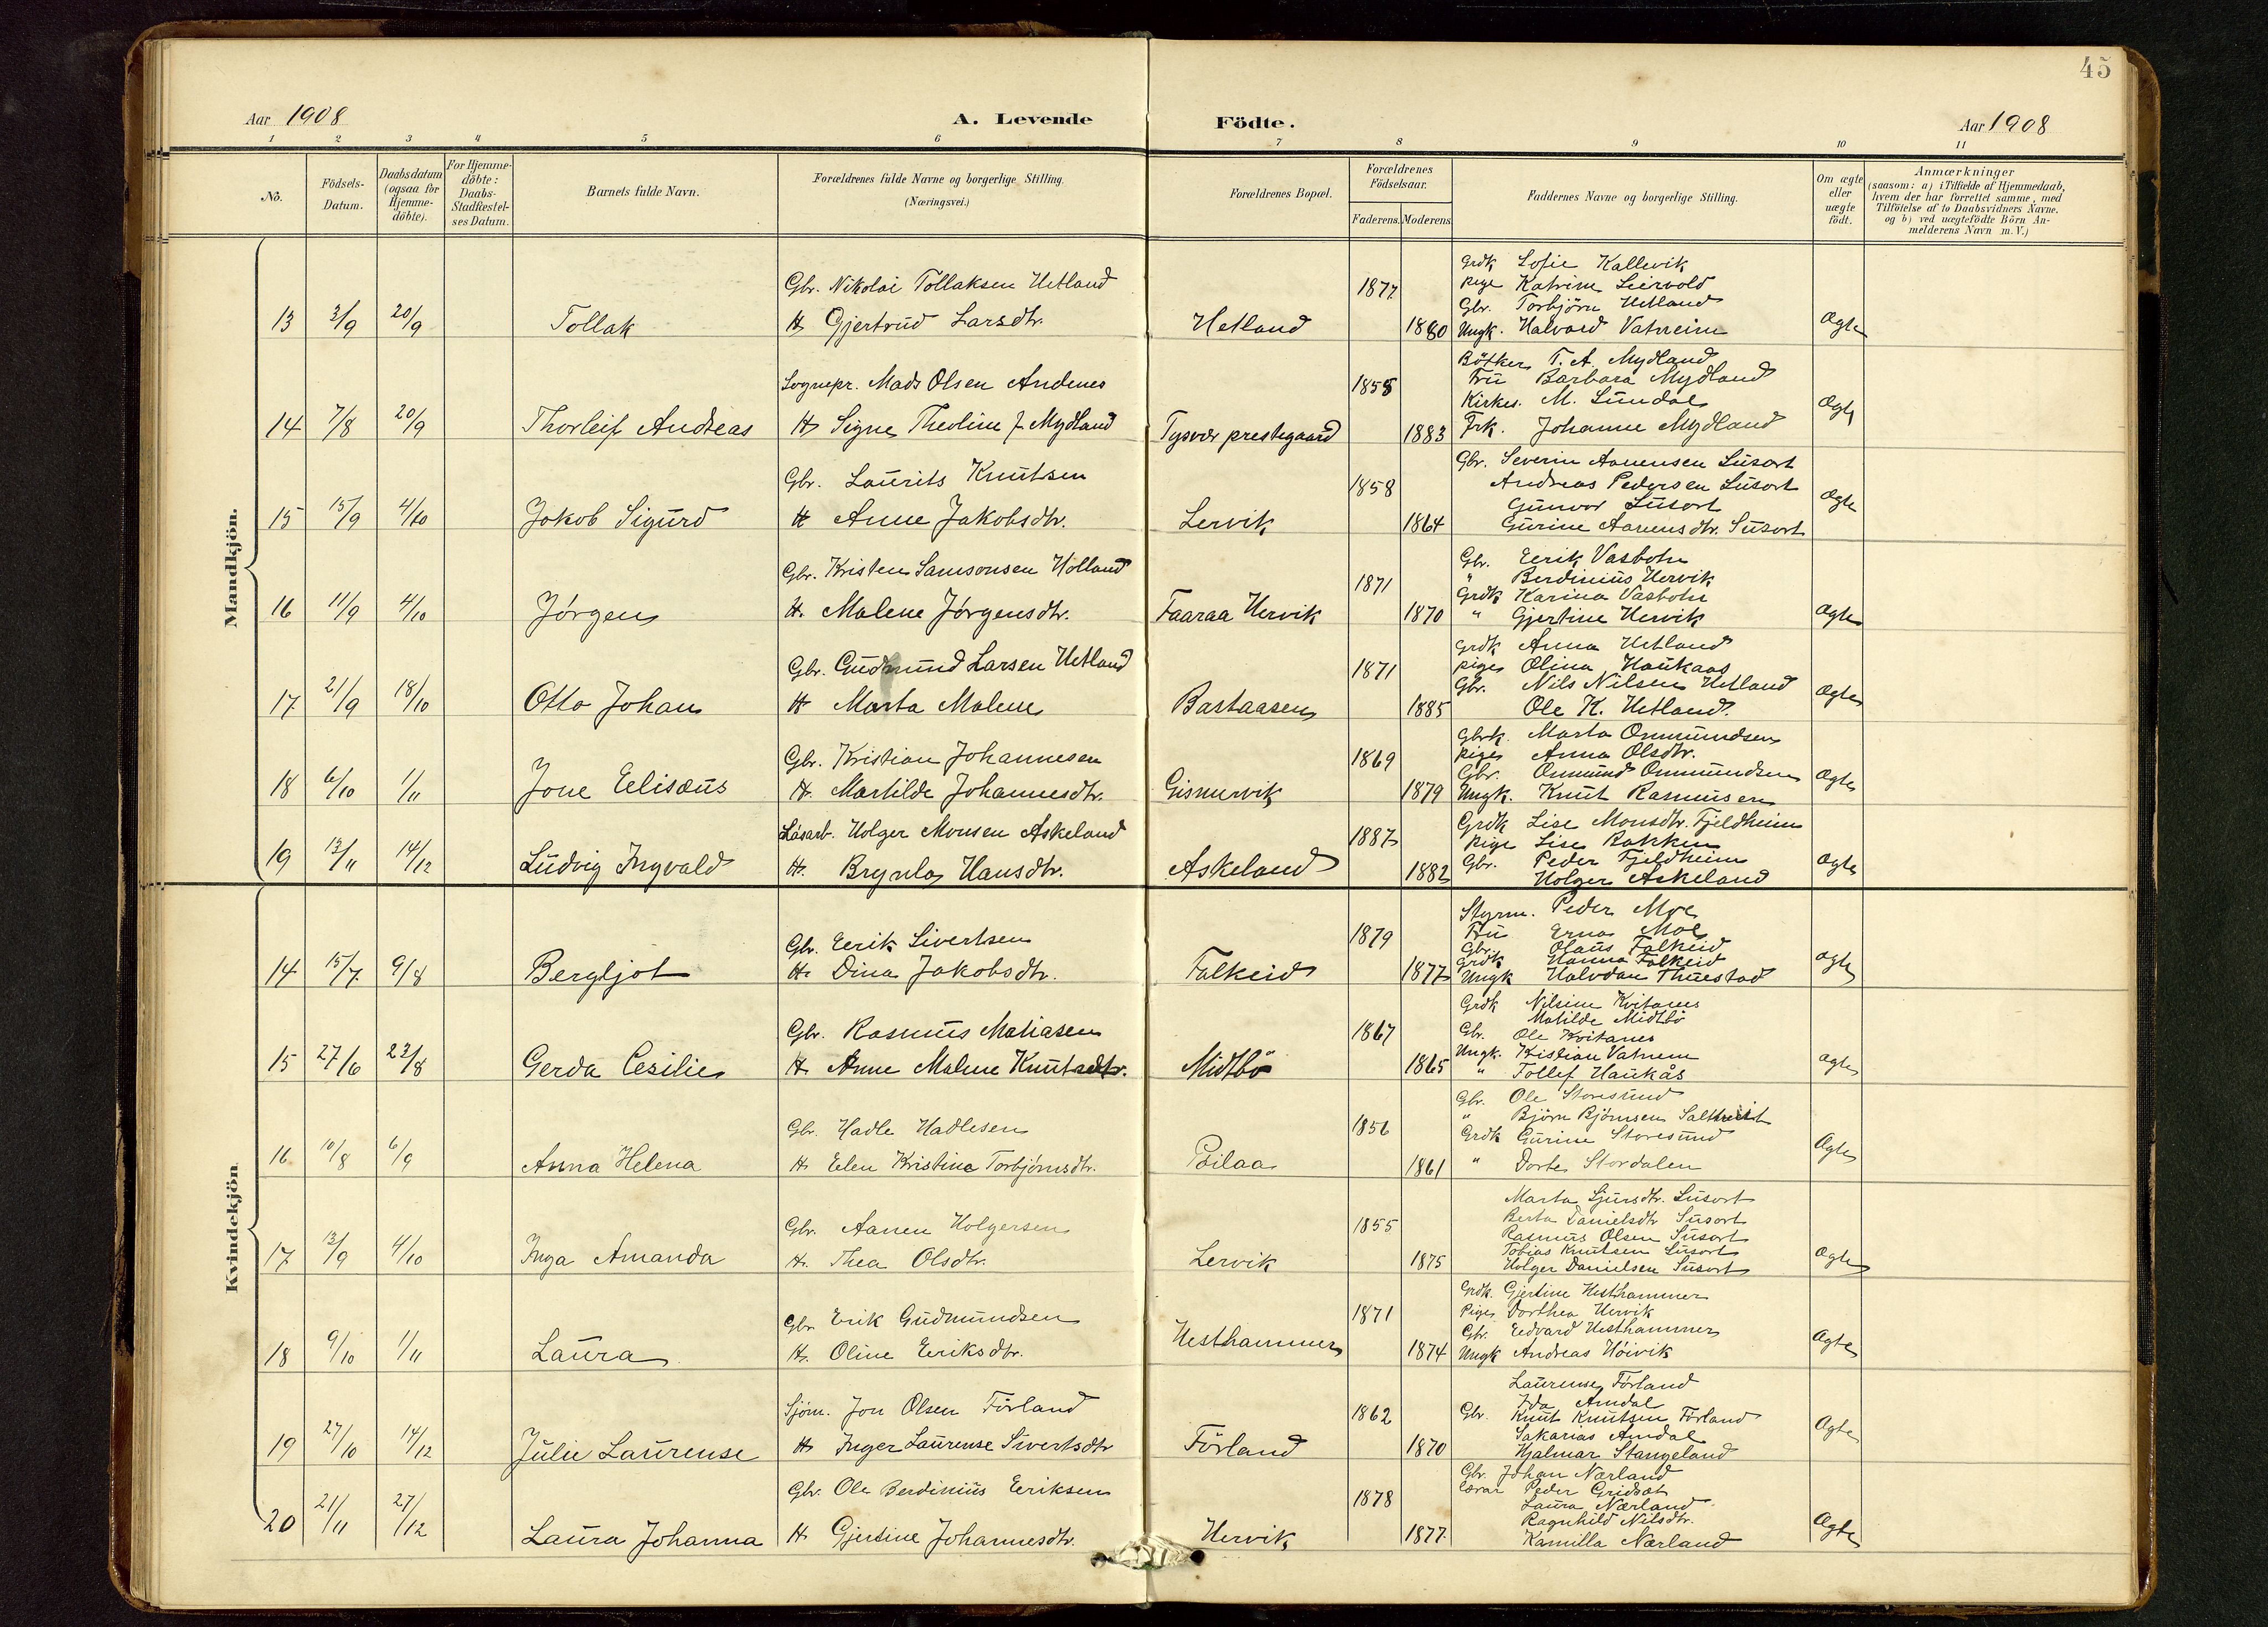 45
Aar 1908 A. Levende Födte. Aar 1908
1 2 3 4 5 6 7 8 9 10 11
No.
Födsels-Datum.
Daabsdatum (ogsaa for Hjemme-döbte).
For Hjemme-döbte: Daabs-Stadfæstel-ses Datum.
Barnets fulde Navn.
Forældrenes fulde Navne og borgerlige Stilling.
(Næringsvei.)
Forældrenes Bopæl.
Forældrenes Födselsaar.
Faderens. Moderens
Faddernes Navne og borgerlige Stilling.
Om ægte eller uægte födt.
Anmærkninger
(saasom: a) i Tilfælde af Hjemmedaab,
hvem der har forrettet samme, med
Tilföielse af to Daabsvidners Navne.
og b) ved uægtefödte Börn An-
melderens Navn m. V.)
Mandkjön.
13 3/9 20/9 Tollak
Gbr. Nikolai Tollaksen Hetland
H Gjertrud Larsdtr.
Hetland 1877 1880
Grdk Sofie Kallevik
Pige Katrine Leirvold
Gbr. Torbjörn Hetland
Ungk. Halvard Vatneim
Ægte
14 7/8 20/9 Thorleif Andreas
Sognepr. Mads Olsen Andenes
H Signe Theoline f. Mydland
Tysvær prestegaard 1855 1883
Bötker T. A. Mydland
Fru Barbara Mydland
Kirkes. M. Sundal
Frk. Johanne Mydland
Ægte
15 15/9 4/10 Jakob Sigurd
Gbr. Laurits Knutsen
H Anne Jakobsdtr.
Lervik 1858 1864
Gbr. Severin Aanensen Susort
Andreas Pedersen Susort
Gunvor Susort
Gurine Aanensdtr. Susort
Ægte
16 11/9 4/10 Jørgen
Gbr. Kristen Samsonsen Hølland
H. Malene Jørgensdtr.
Faaraa Hervik 1871 1870
Gbr. Eerik Vasbotn
" Berdinius Hervik
Grdk Karina Vasbotn
" Gjertine Hervik
Ægte
17 21/9 18/10 Otto Johan
Gbr. Gudmund Larsen Hetland
H Marta Malene
Bastaasen 1871 1885
Grdk Anna Hetland
pige Olina Haukaas
Gbr. Nils Nilsen Hetland
Ole K. Hetland.
Ægte
18 6/10 1/11 Jone Eelisæus
Gbr. Kristian Johannesen
H. Martilde Johannesdtr.
Gismervik 1869 1879
Gbrk. Marta Onmundsen
pige Anna Olsdtr.
Gbr. Onmund Onmundsen
Ungk. Knut Rasmusen
Ægte
19 13/11 14/12 Ludvig Ingvald
Løsarb. Holger Monsen Askeland
H. Brynla Hansdtr.
Askeland 1887 1882
Grdk Lise Monsdtr. Fjeldheim
Pige Lise Bakken
Gbr. Peder Fjeldheim
Holger Askeland
Ægte
Kvindekjön.
14 15/7 9/8 Bergljot
Gbr. Eerik Sivertsen
H. Dina Jakobsdtr.
Falkeid 1879 1877
Styrm. Peder Moe
Fru Erna Moe
Gbr. Olaus Falkeid
Grdk Hanna Falkeid
Ungk Halvdan Thuestad
ægte
15 27/6 23/8 Gerda Cesilie
Gbr. Rasmus Matiasen
H. Anne Malene Knutsdtr.
Midtbö 1867 1865
Grdk Nilsine Kvitanes
Matilde Midtbö
Gbr. Ole Kvitanes
Ungk. Kristian Vatnem
" Tollef Haukås
ægte
16 10/8 6/9 Anna Helena
Gbr. Hadle Hadlesen
H. Elen Kristine Torbjörnsdtr.
Boilaa 1856 1861
Gbr. Ole Storesund
" Björn Björnsen
Grdk Gurine Storesund
" Dorte Stordalen
Ægte
17 13/9 4/10 Inga Amanda
Gbr. Aanen Holgersen
H. Thea Olsdtr.
Lervik 1855 1875
Marta Sjursdtr. Susort
Berta Danielsdtr Susort
Rasmus Olsen Susort
Tobias Knutsen Susort
Holger Danielsen Susort
Ægte
18 9/10 1/11 Laura
Gbr Erik Gudmundsen
H. Oline Eeriksdtr.
Hesthammer 1871 1874
Grdk. Gjertine Hesthammer
Pige Dorthea Hervik
Gbr. Eedvard Hesthammer
Ungk Andreas Höivik
Ægte
19 27/10 14/12 Julie Laurense
Sjöm. Jon Olsen Förland
H Inger Laurense Sivertsdtr
Förland 1862 1870
Laurense Förland
Ida Amdal
Gbr. Knut Knutsen Förland
Sakarias Amdal
Hjalmar Stangeland
Ægte
20 21/11 27/12 Laura Johanna
Gbr. Ole Berdinius Eeriksen
H Gjertine Johannesdtr.
Hervik 1878 1877
Gbr. Johan Nærland
Peder
Laura Nærland
Ragnhild Nilsdtr.
Kamilla Nærland
Ægte